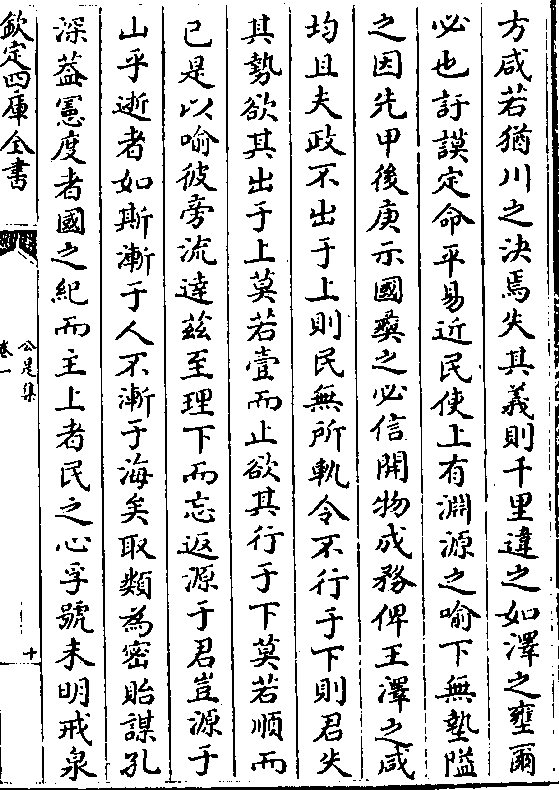 方咸若猶川之決焉失其義則千里違之如澤之壅爾
必也訏謨定命平易近民使上有淵源之喻下無墊隘
之因先甲後庚示國彛之必信開物成務俾王澤之咸
均且夫政不出于上則民無所軌令不行于下則君失
其勢欲其出于上莫若壹而止欲其行于下莫若順而
已是以喻彼旁流達茲至理下而忘返源于君豈源于
山乎逝者如斯漸于人不漸于海矣取類為密貽謀孔
深葢憲度者國之紀而主上者民之心孚號未明戒泉
欽定四庫全書
公是集
卷一
十